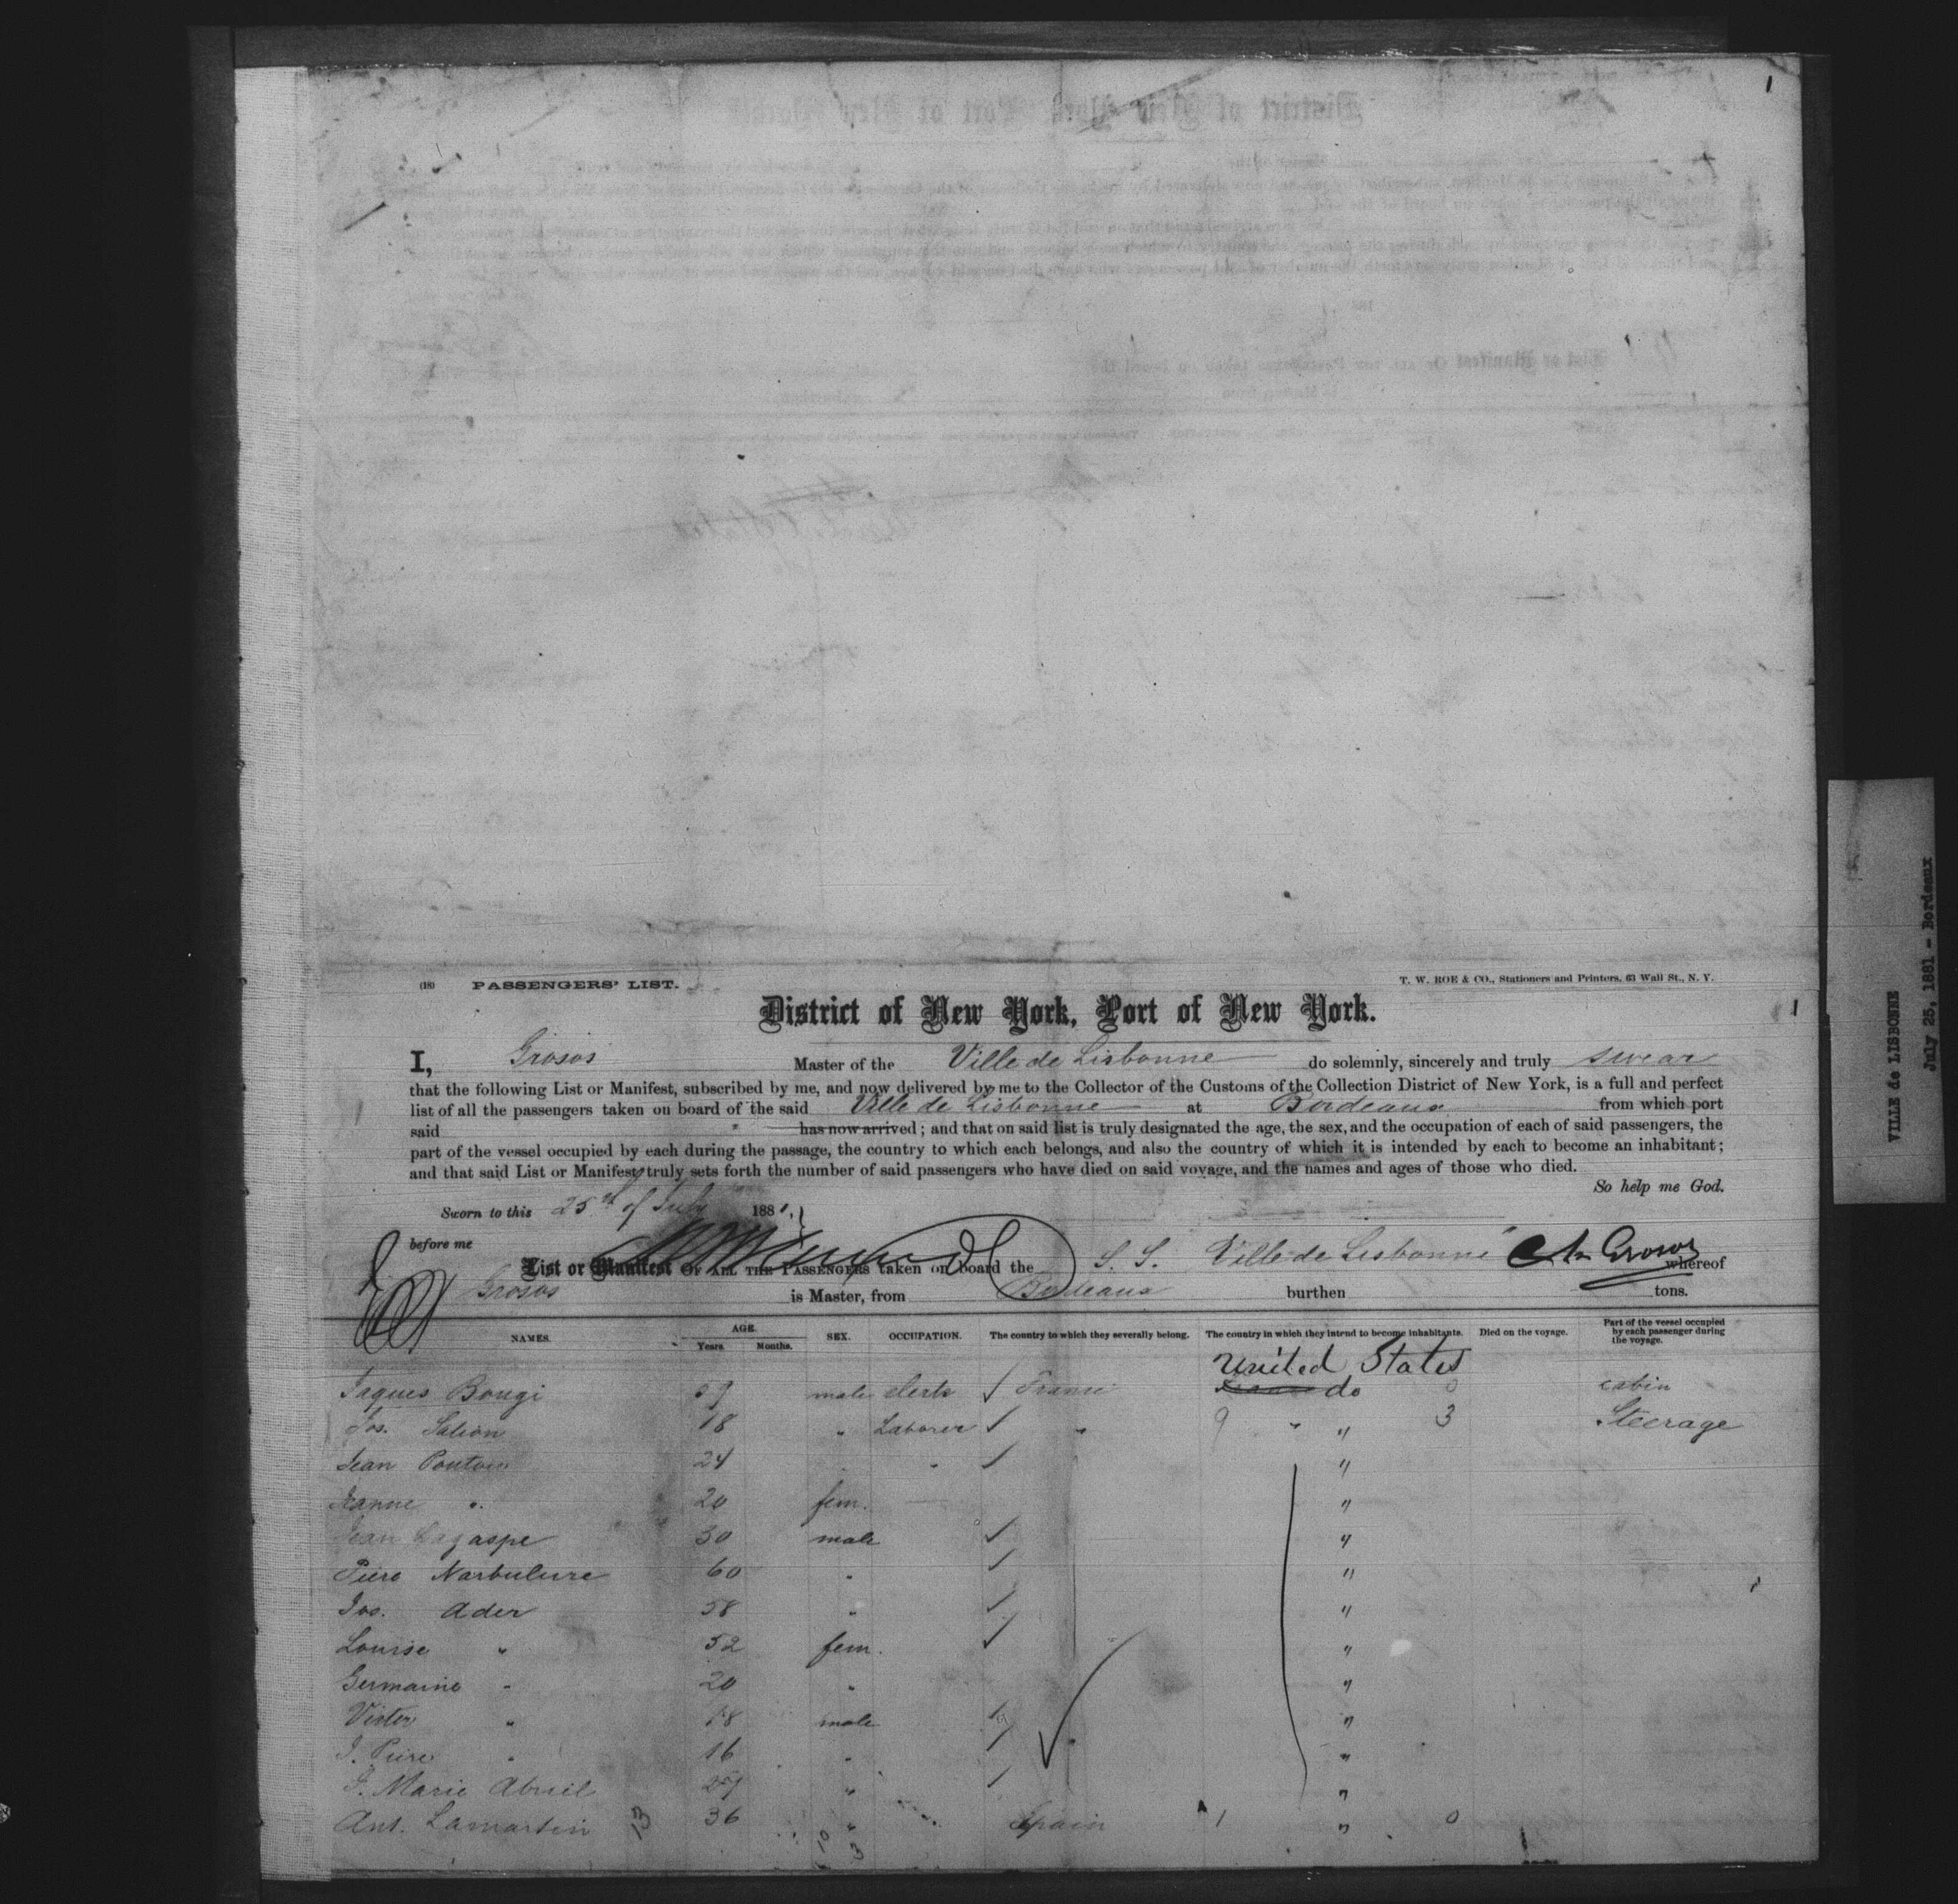 1
(18) PASSENGERS' LIST.
T. W. ROE & CO., Stationers and Printers, 63 Wall St., N. Y.
District of New York, Port of New York.
1
I, Grosos Master of the Ville de Lisbonne do solemnly, sincerely and truly swear
that the following List or Manifest, subscribed by me, and now delivered by me to the Collector of the Customs of the Collection District of New York, is a full and perfect
list of all the passengers taken on board of the said Ville de Lisbonne at Bordeaux from which port
said " has now arrived; and that on said list is truly designated the age, the sex, and the occupation of each of said passengers, the
part of the vessel occupied by each during the passage, the country to which each belongs, and also the country of which it is intended by each to become an inhabitant;
and that said List or Manifest truly sets forth the number of said passengers who have died on said voyage, and the names and ages of those who died.
So help me God.
Sworn to this 25th of July 1881,
before me
List or Manifest OF ALL THE PASSENGERS taken on board the S. S. Ville de Lisbonne whereof
Grosos is Master, from Bordeaux burthen tons.
NAMES. AGE. Years. Months. SEX. OCCUPATION. The country to which they severally belong. The country in which they intend to become inhabitants. Died on the voyage. Part of the vessel occupied by each passenger during the voyage.
United States
Jaques Bougi 59 male clerk France do 0 cabin
Jos. Salion 18 " Laborer " 9 " " 3 Steerage
Jean 24 " "
Jeanne " 20 fem. "
Jean 30 male "
Piere Narbulure 60 " "
Jos. Ader 58 " "
Louise " 52 fem. "
Germaine " 20 " "
Victor " 18 male "
J. Piere " 16 " "
J. Marie Abriel 27 " "
Ant. Lamartin 13 36 " " Spain 1 " 0
10 3
VILLE de LISBONNE
July 25, 1881 - Bordeaux